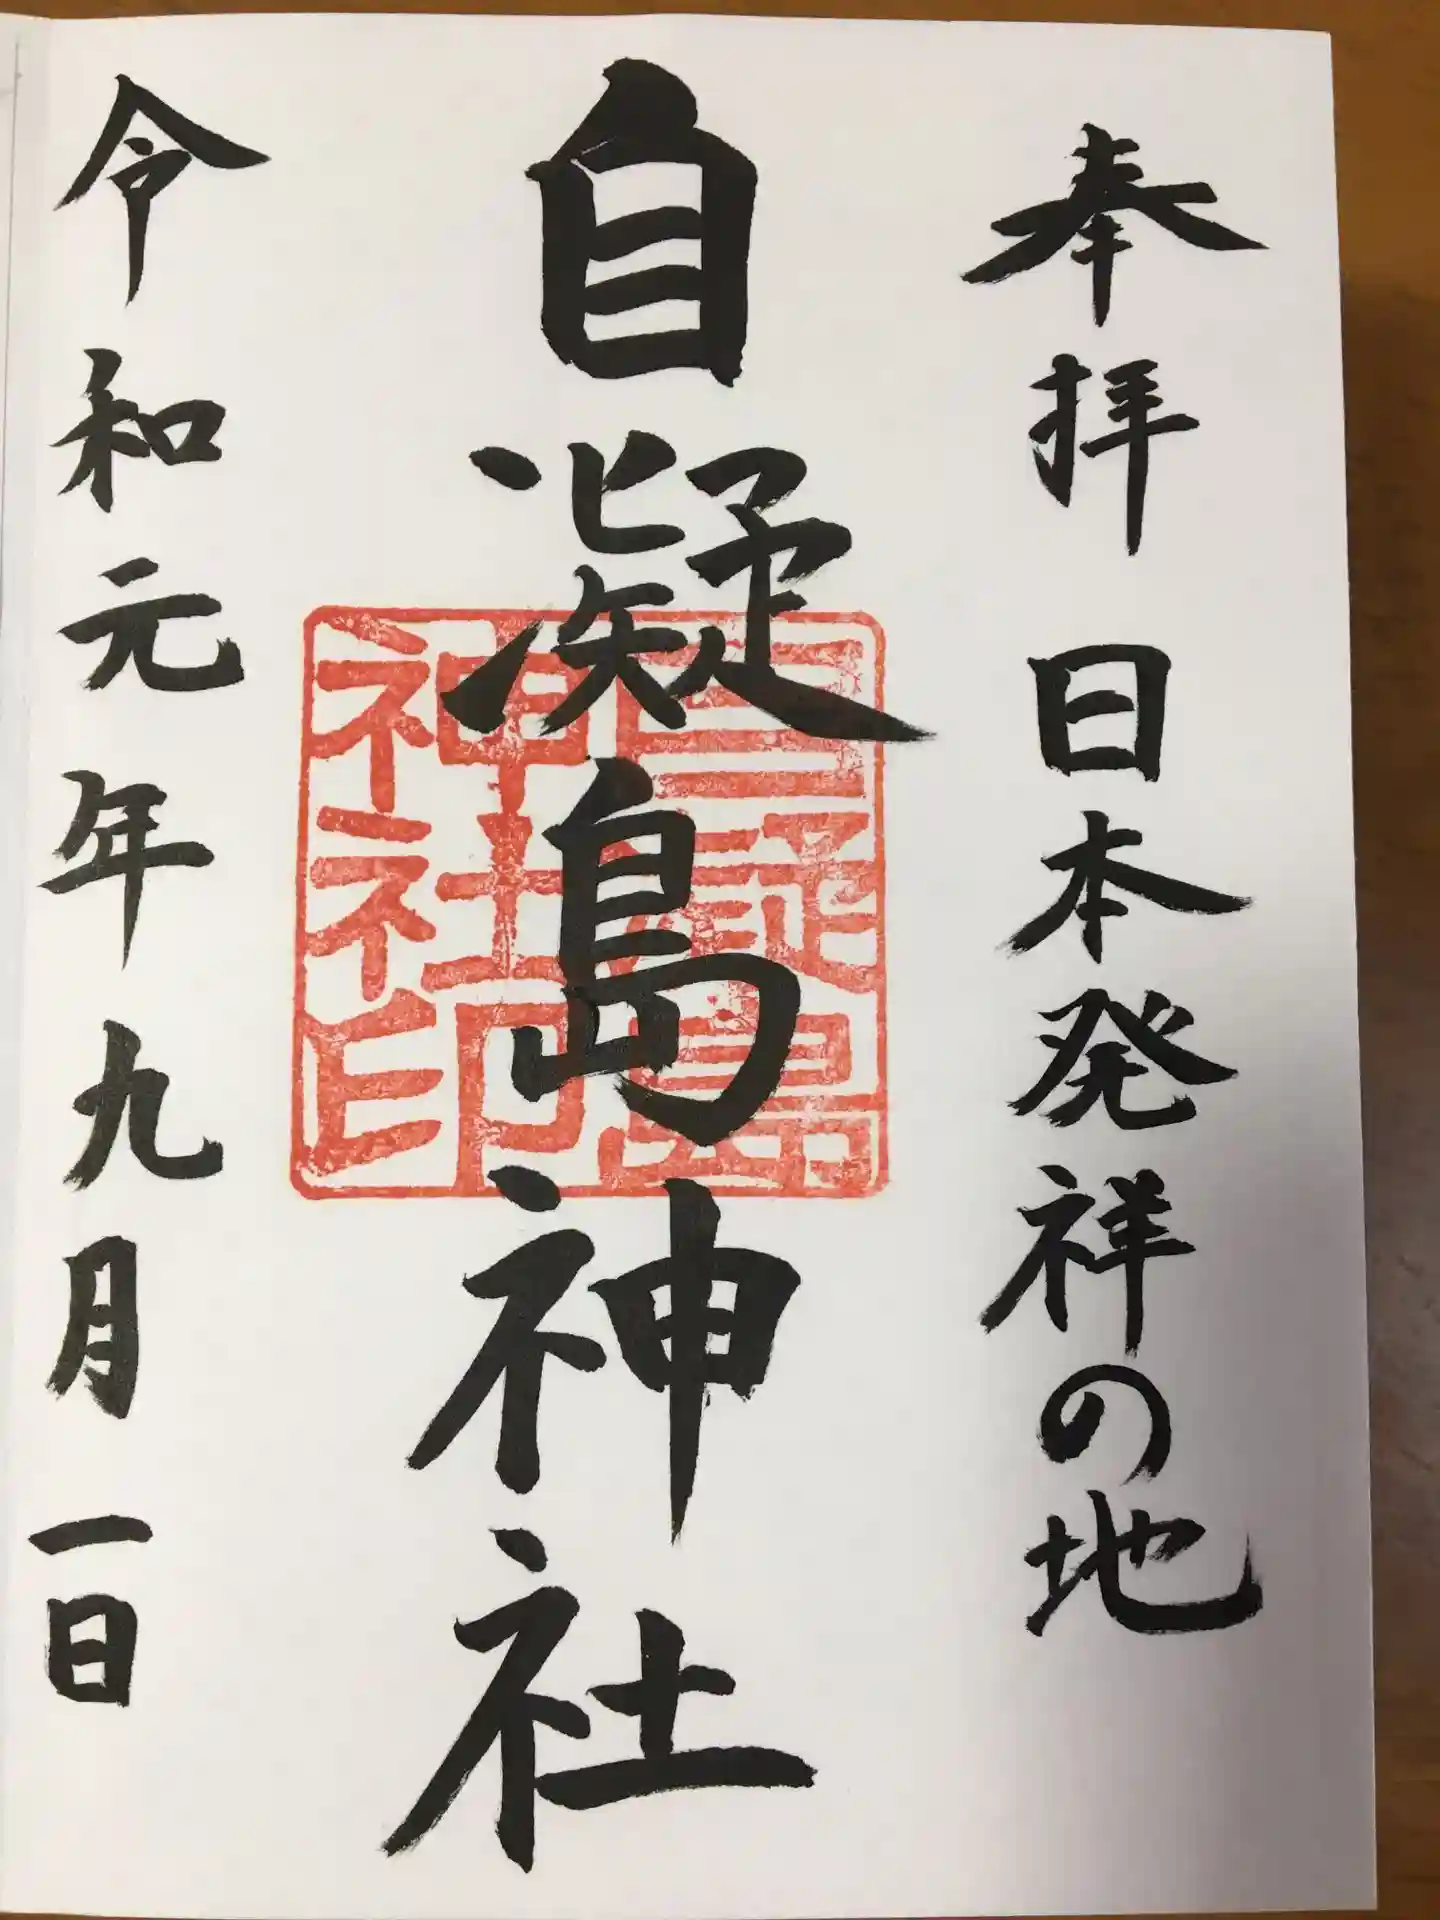 奉拝 日本発祥の地
自凝島神社
自凝島
神社印
令和元年九月一日